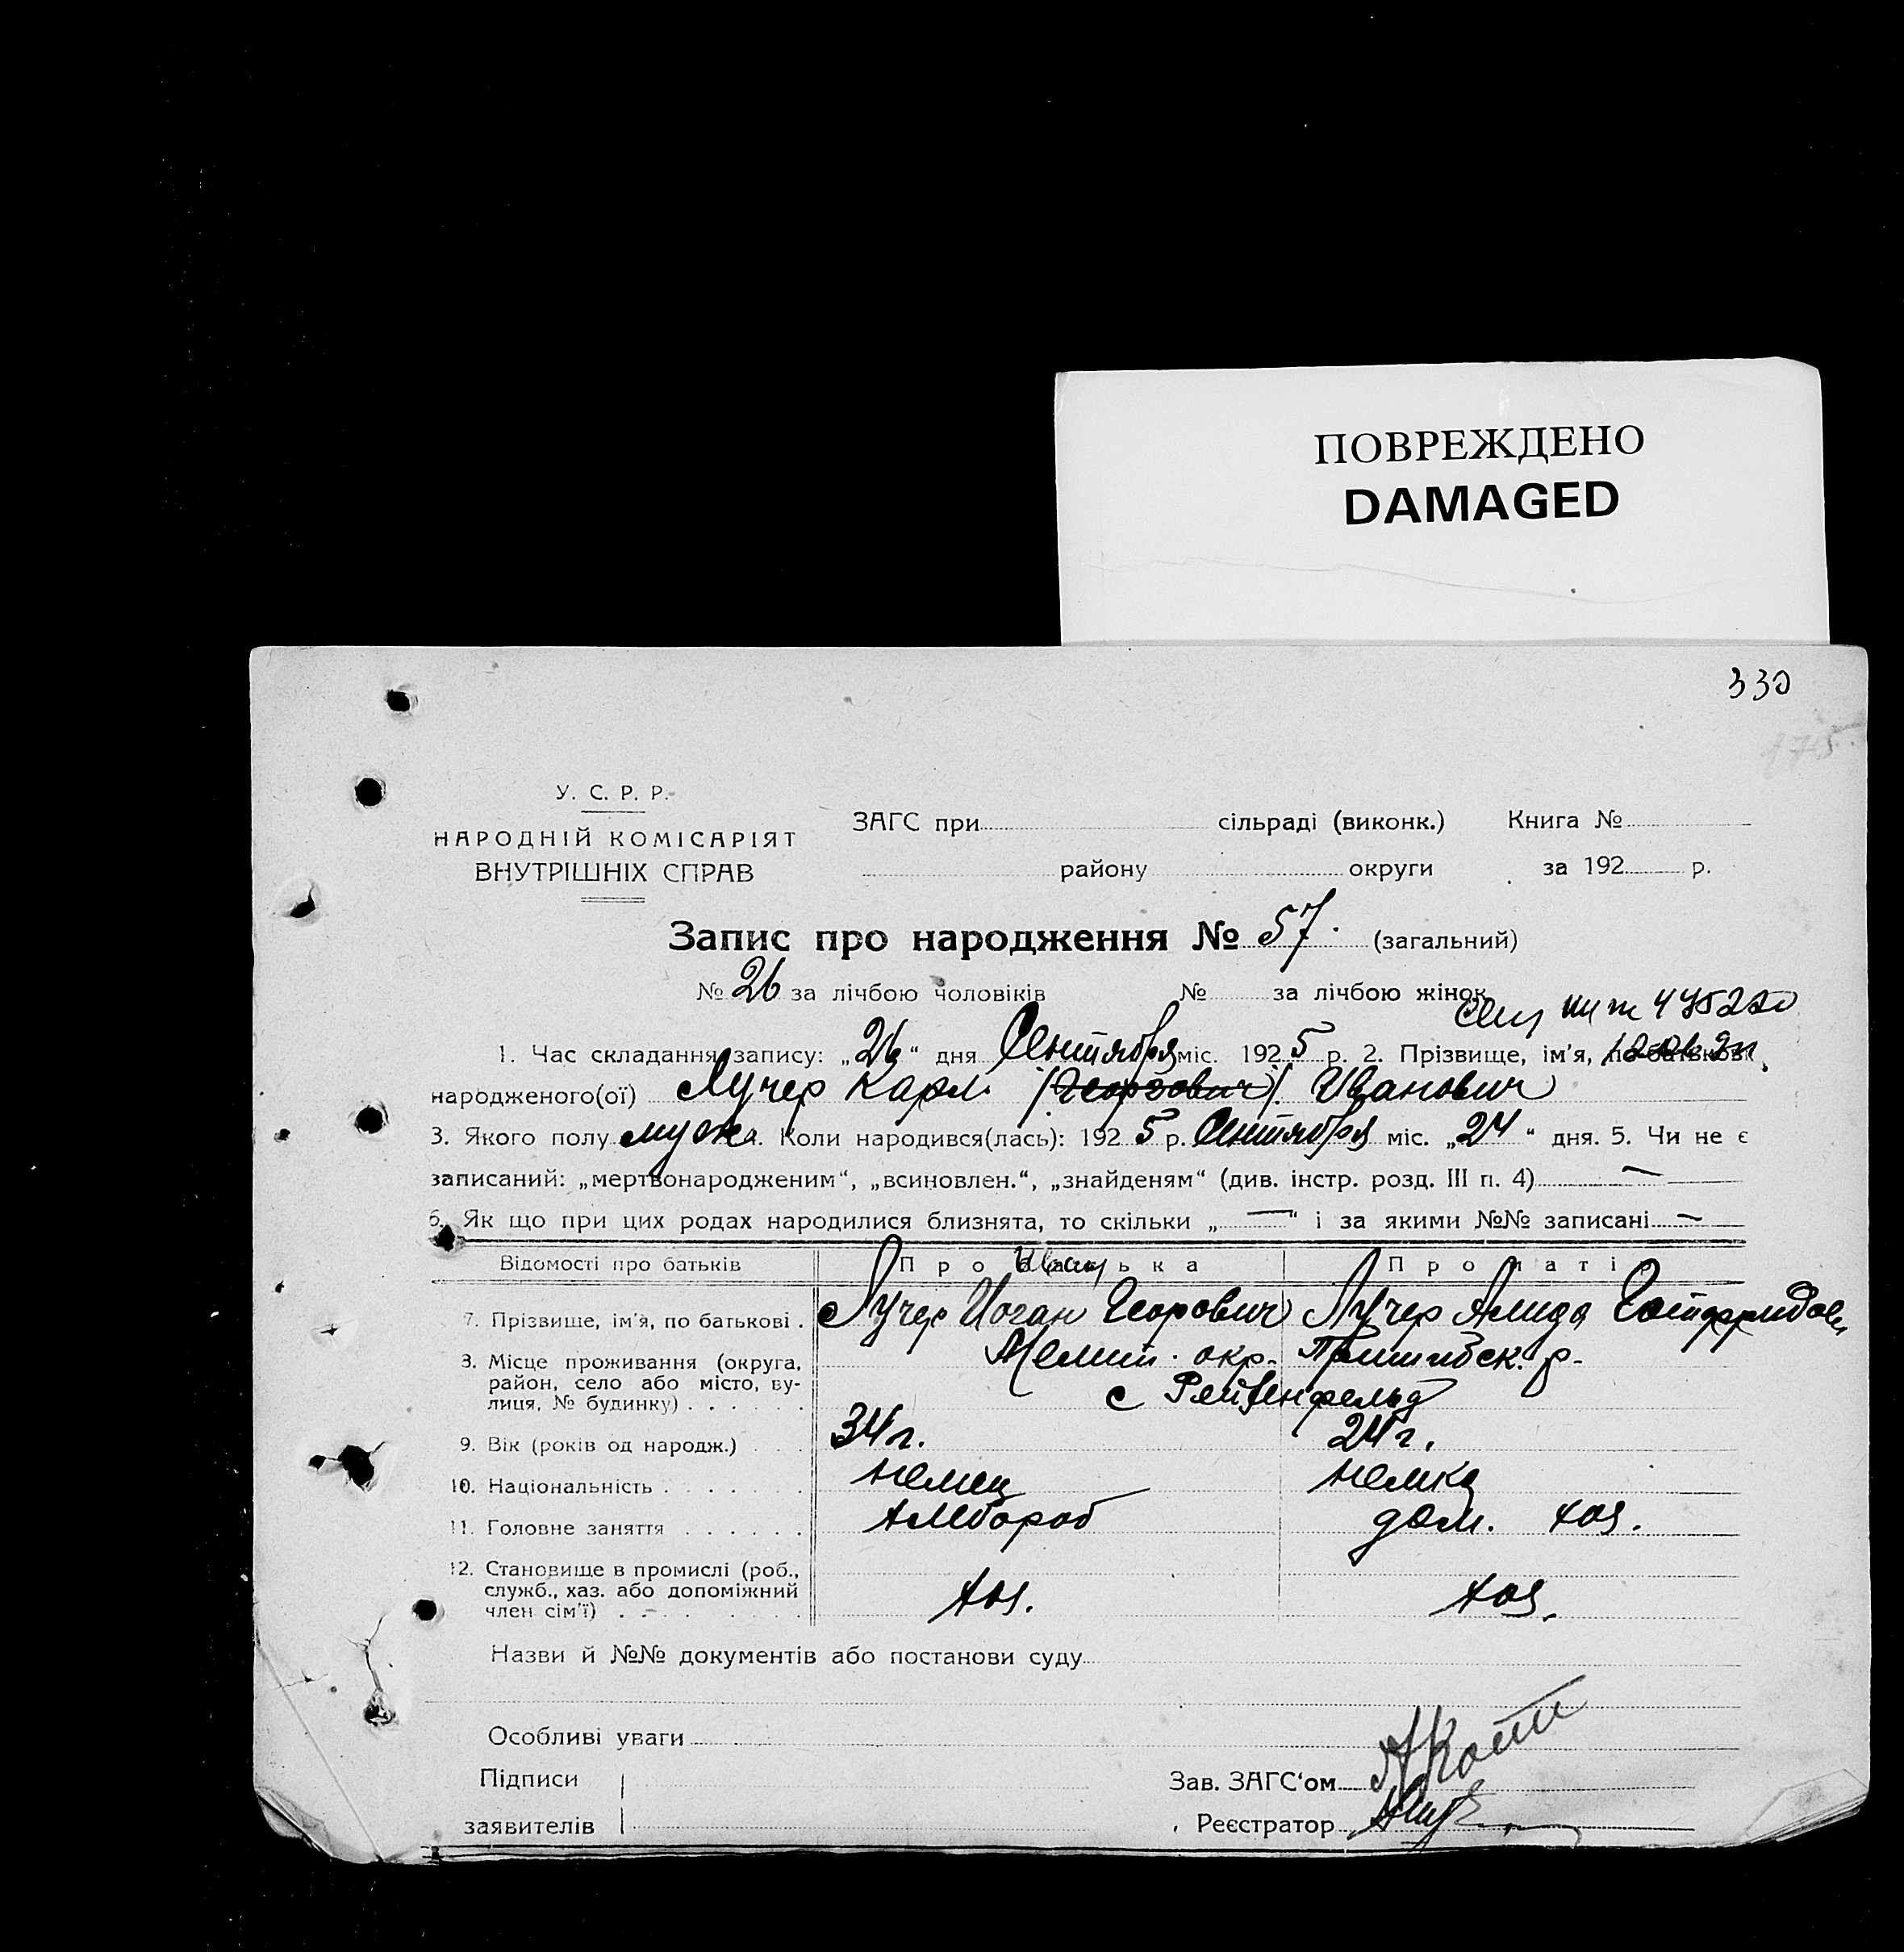 ПОВРЕЖДЕНО
DAMAGED
330
У. С. Р. Р.
НАРОДНІЙ КОМІСАРІЯТ
ВНУТРІШНІХ СПРАВ
ЗАГС при сільраді (виконк.) Книга №
району округи за 192 р.
Запис про народження № 57. (загальний)
№ 26 за лічбою чоловіків № за лічбою жінок
1. Час складання запису: „26“ дня Сентября міс. 1925 р. 2. Прізвище, ім’я, по батькові
народженого(ої) Лучер Карл (Георгович) Иванович
3. Якого полу муж. Коли народився(лась): 1925 р. Сентября міс. „24“ дня. 5. Чи не є
записаний: „мертвонародженим“, „всиновлен.“, „знайденям“ (див. інстр. розд. III п. 4) —
6. Як що при цих родах народилися близнята, то скільки „—“ і за якими №№ записані —
Відомості про батьків Про батька Про матір
Иван
7. Прізвище, ім’я, по батькові . Лучер Иоган Георович Лучер
8. Місце проживання (округа, Мелит. окр. Пришибск. р.
район, село або місто, ву-
лиця, № будинку) . . . . . . с
9. Вік (років од народж.) . . . 34 г. 24 г.
10. Національність . . . . . . . немец немка
11. Головне заняття . . . . . . хлебороб дом. хоз.
12. Становище в промислі (роб.,
служб., хаз. або допоміжний
член сім’ї) . . . . . . . . хоз. хоз.
Назви й №№ документів або постанови суду
Особливі уваги
Підписи
заявителів
Зав. ЗАГС‘ом
Реєстратор